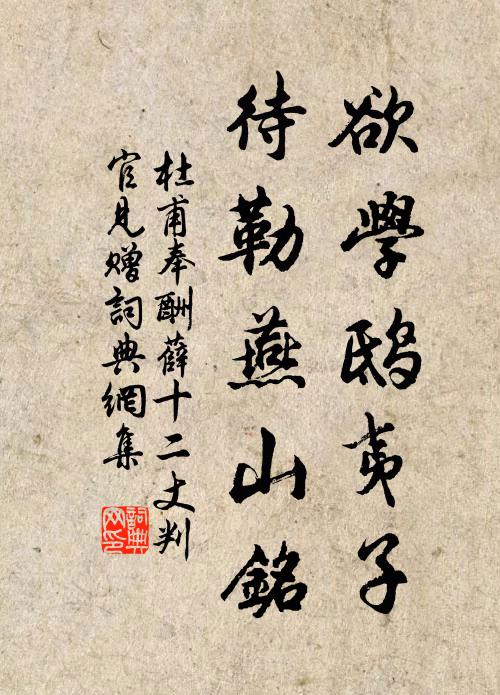 欲學鴟夷子
待勒燕山銘
杜甫奉酬薛十二丈判
官見贈詞典網集
詞典
网印